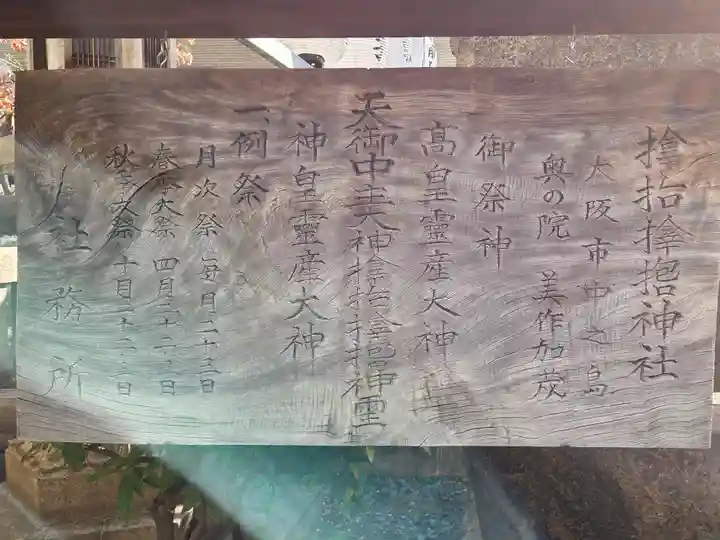 𪮷抬𪮇𪮚神社
大阪市中之島
奥の院 美作加茂
御祭神
髙皇靈産大神
天御中主大神𪮷抬𪮇𪮚神霊
神皇靈産大神
一、例祭
月次祭 毎月二十三日
春季大祭 四月二十二、日
秋季大祭 十月二十二、日
社務所